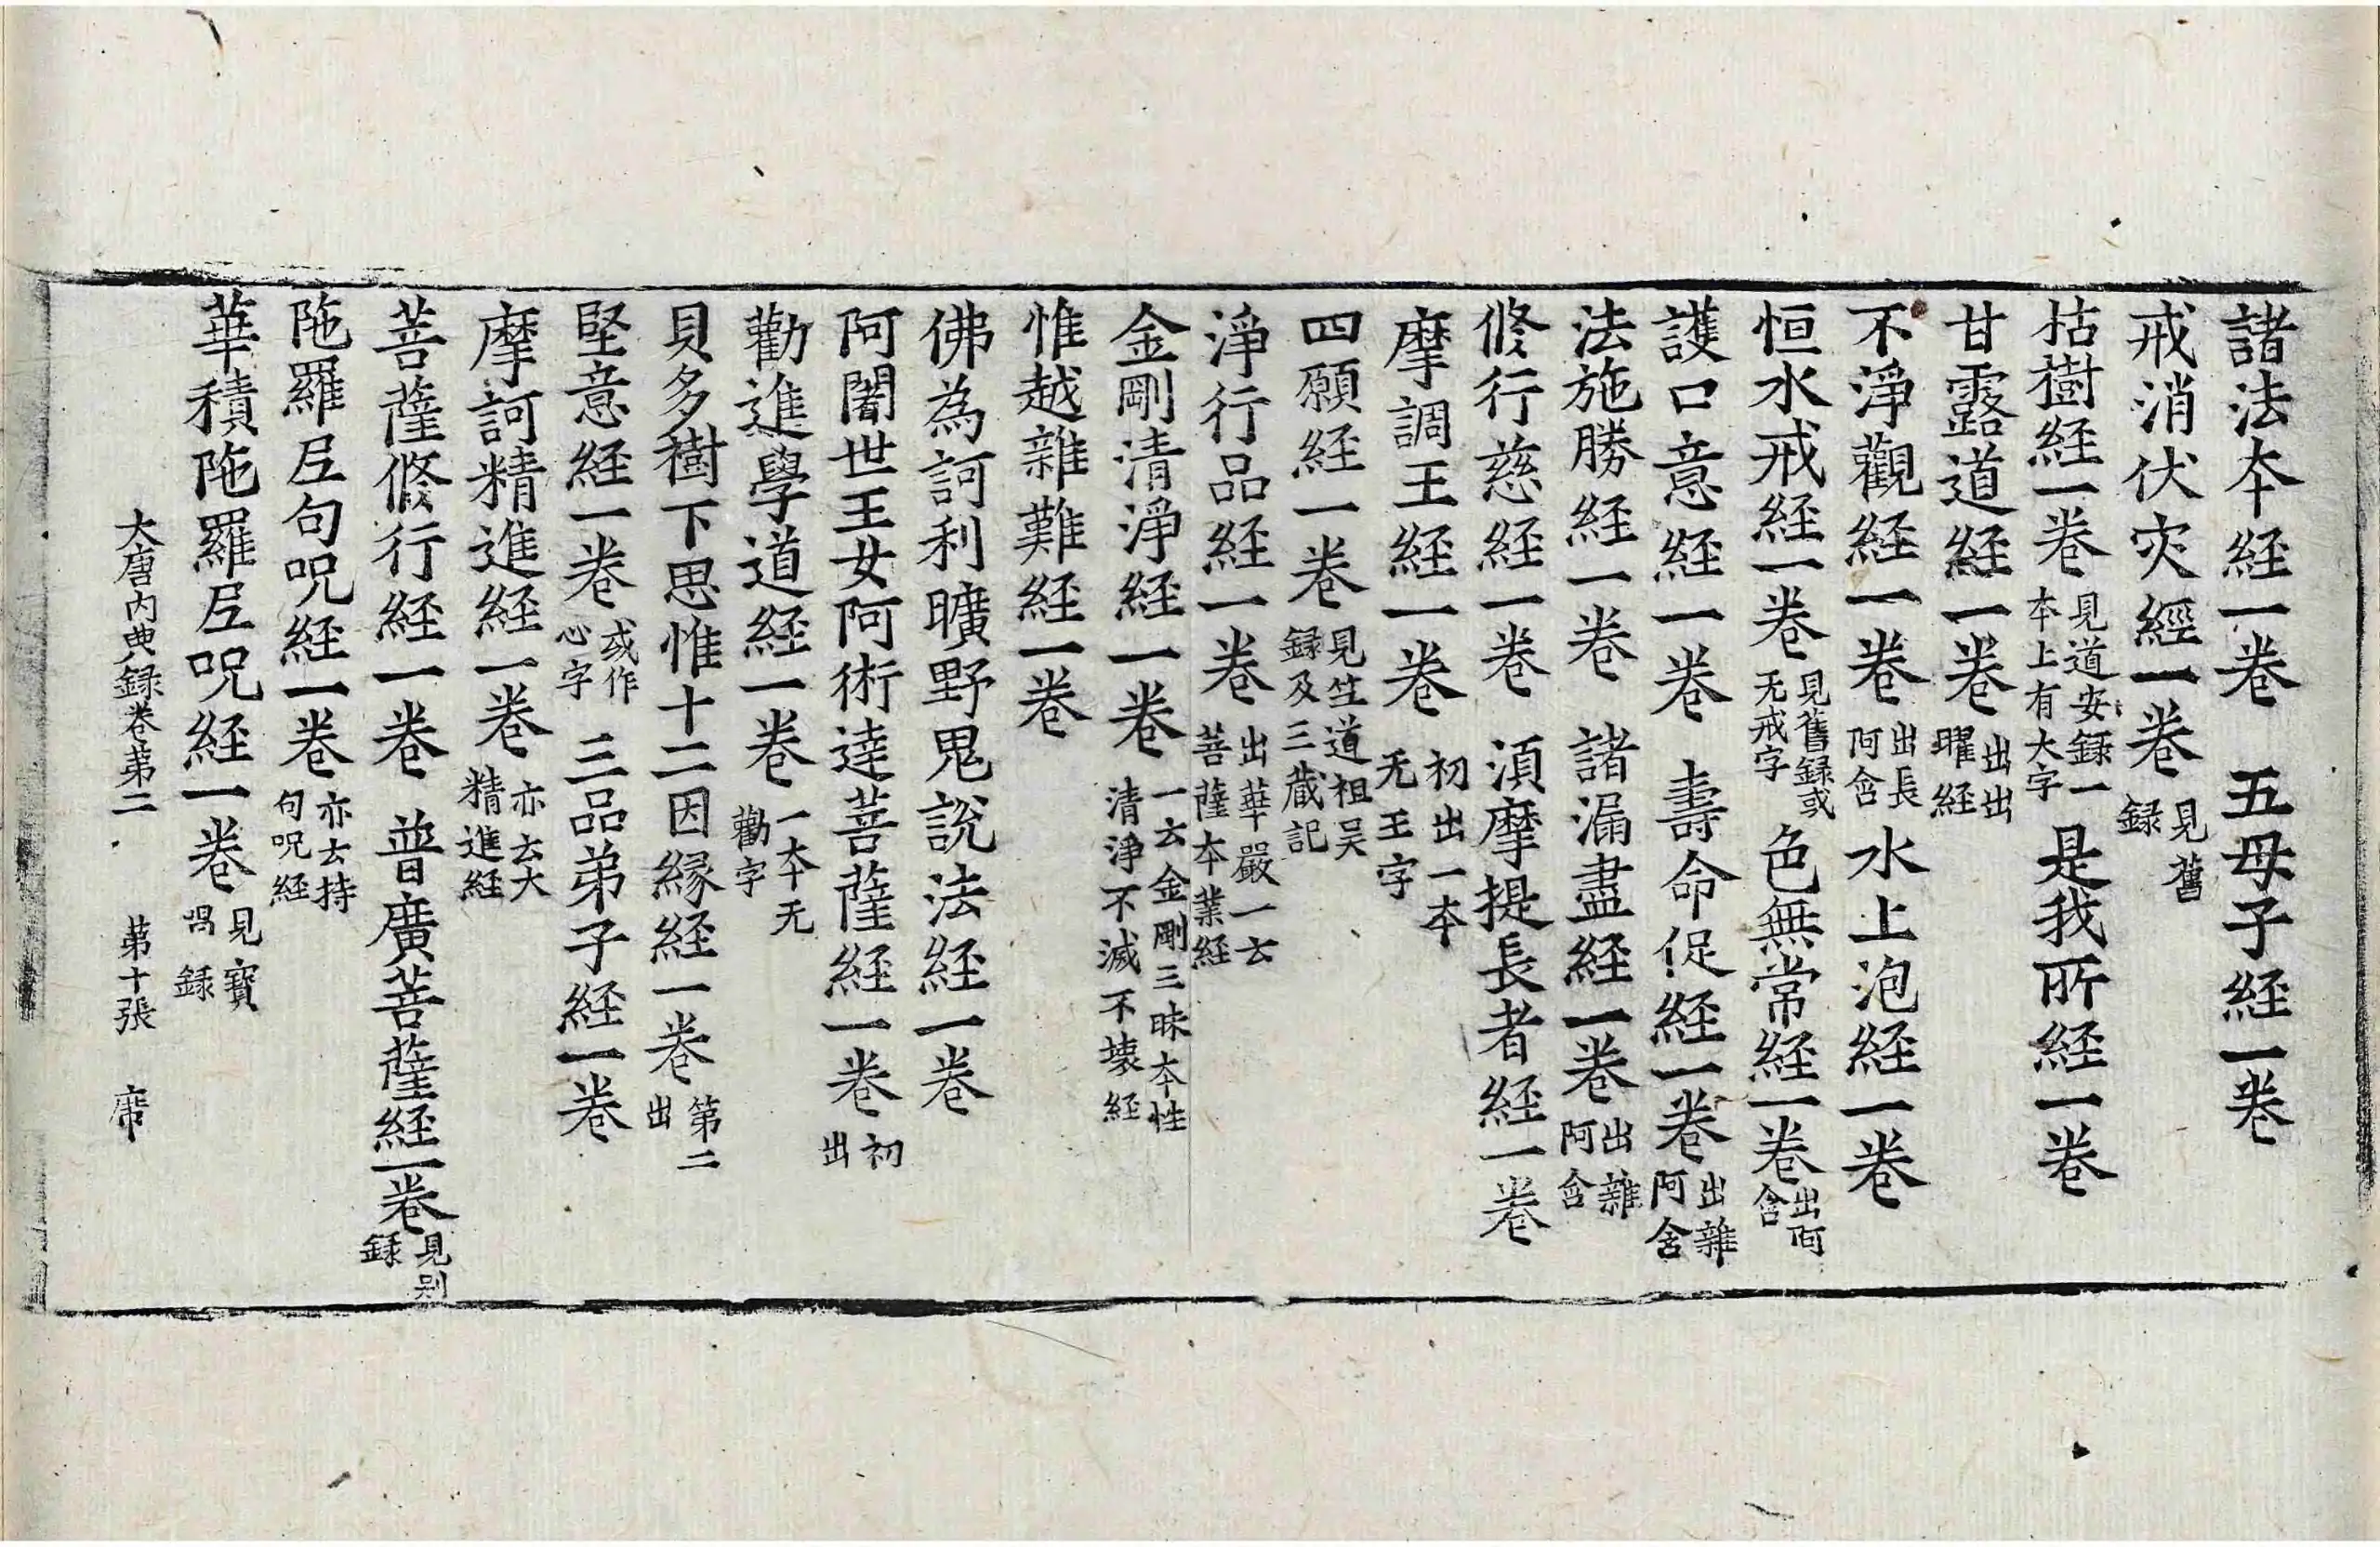 諸法夲経一卷　五母子経一卷
戒消伏灾經一卷見舊録
枯樹経一卷見道安録一夲上有大字是我所経一卷
甘露道経一卷出出曜経
不淨觀経一卷出長阿含水上泡経一卷
恒水戒経一卷見舊録或无戒字色無常経一卷出阿含
護口意経一卷　壽命促経一卷出雜阿含
法施勝経一卷　諸漏盡経一卷出雜阿含
修行慈経一卷　湏摩提長者経一卷
摩調王経一卷初出一夲无王字
四願経一卷見竺道祖吴録及三藏記
淨行品経一卷出華嚴一云菩薩夲業経
金剛清淨経一卷一云金剛三昧夲性清淨不滅不壊経
惟越雜難経一卷
佛為訶利曠野鬼說法経一卷
阿闍世王女阿術達菩薩経一卷初出
勸進學道経一卷一夲无勸字
貝多樹下思惟十二因縁経一卷第二出
堅意経一卷或作心字三品弟子経一卷
摩訶精進経一卷亦云大精進経
菩薩修行経一卷　普廣菩薩経一卷見别録
陁羅尼句呪経一卷亦云持句呪経
華積陁羅尼呪経一卷見寶唱録
大唐内典録卷苐二　苐十張　席